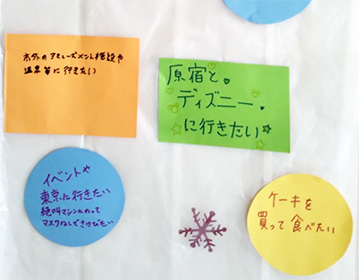 ホタルのアミューズメント施設や
温泉等に行きたい
原宿と
ディズニー
に行きたい
イベントや
東京に行きたい
絶叫マシンにのって
マスクなしでさけびたい
ケーキを
買って食べたい